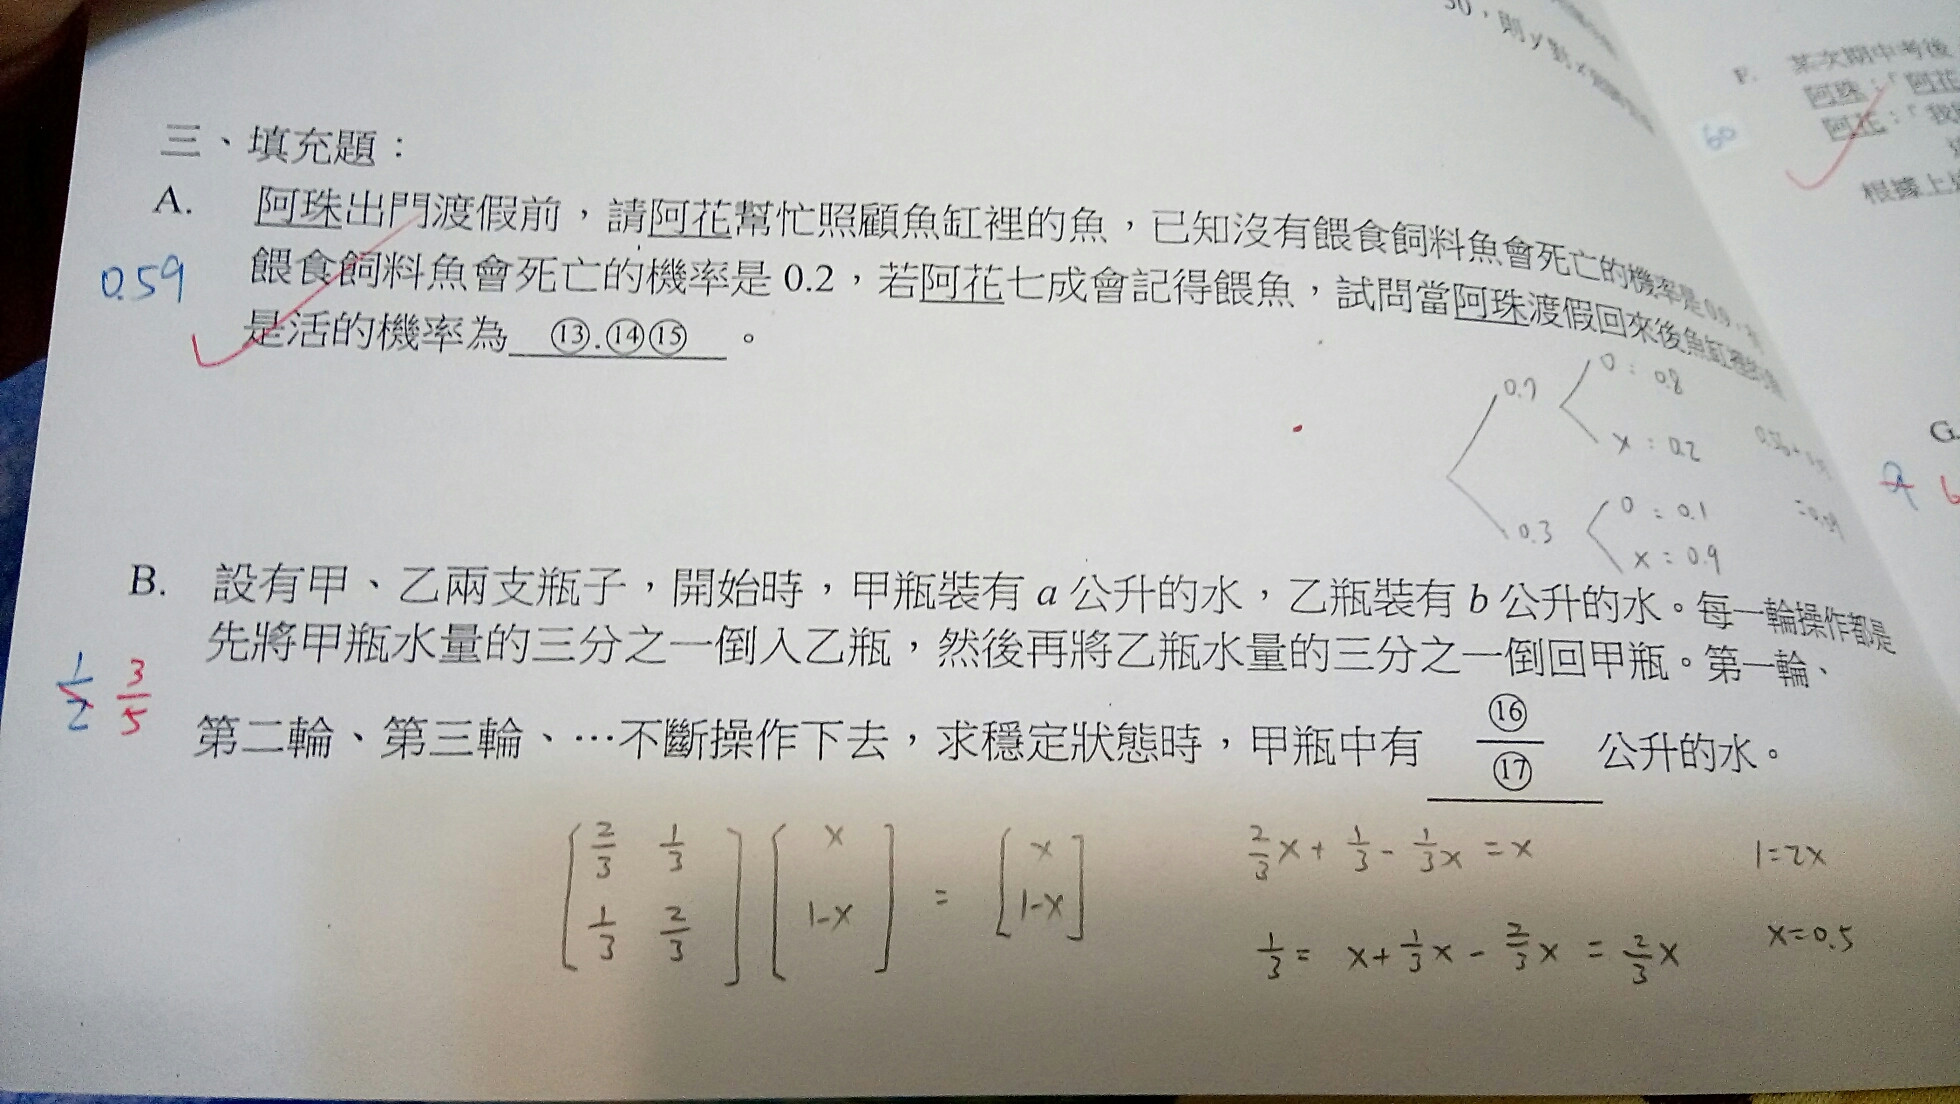 50，則y對x
三、填充題：
A. 阿珠出門渡假前，請阿花幫忙照顧魚缸裡的魚，已知沒有餵食飼料魚會死亡的機率是0.9，
餵食飼料魚會死亡的機率是0.2，若阿花七成會記得餵魚，試問當阿珠渡假回來後魚缸裡的魚
是活的機率為 ⑬.⑭⑮ 。
0.59
0.7
0：0.8
x：0.2
0.3
0：0.1
x：0.9
B. 設有甲、乙兩支瓶子，開始時，甲瓶裝有a公升的水，乙瓶裝有b公升的水。每一輪操作都是
先將甲瓶水量的三分之一倒入乙瓶，然後再將乙瓶水量的三分之一倒回甲瓶。第一輪、
第二輪、第三輪、…不斷操作下去，求穩定狀態時，甲瓶中有 ⑯/⑰ 公升的水。
1/2 3/5
[2/3 1/3] [x] = [x]
[1/3 2/3] [1-x] [1-x]
2/3x + 1/3 - 1/3x = x
1=2x
1/3 = x + 1/3x - 2/3x = 2/3x
x=0.5
F. 某次期中考後
阿珠：「阿花
阿花：「我
60
根據上
G.